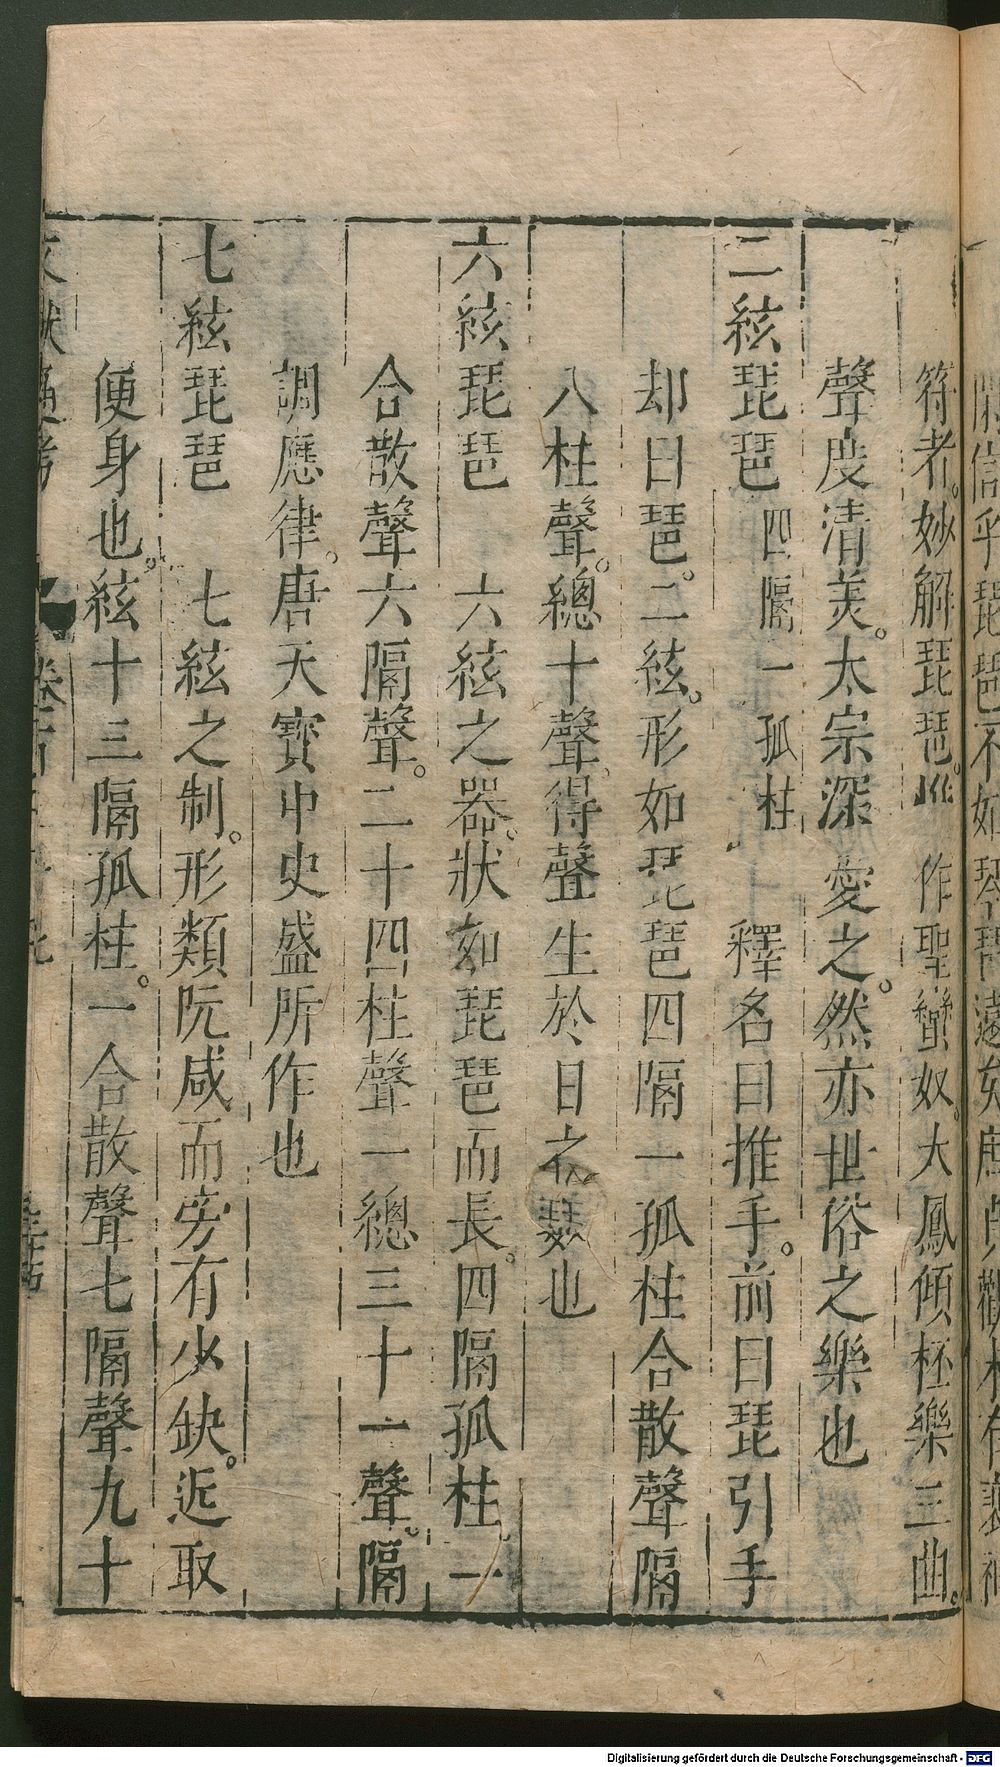 符者。妙解琵琶。作聖蠻奴。大鳳傾柸樂三曲。
聲度清美。太宗深愛之。然亦世俗之樂也
二絃琵琶 四隔一孤柱 釋名曰推手。前曰琵引手
却曰琶。二絃。形如琵琶四隔一孤柱合散聲隔
八柱聲。總十聲。得聲生於日之數也
六絃琵琶 六絃之器。狀如琵琶而長。四隔孤柱。一
合散聲六隔聲。二十四柱聲一總三十一聲。隔
調應律。唐天寶中史盛所作也
七絃琵琶 七絃之制。形類阮咸而旁有少缺。近取
便身也。絃十三隔孤柱。一合散聲七隔聲九十
文獻通考 卷一百三十七
Digitalisierung gefördert durch die Deutsche Forschungsgemeinschaft - DFG